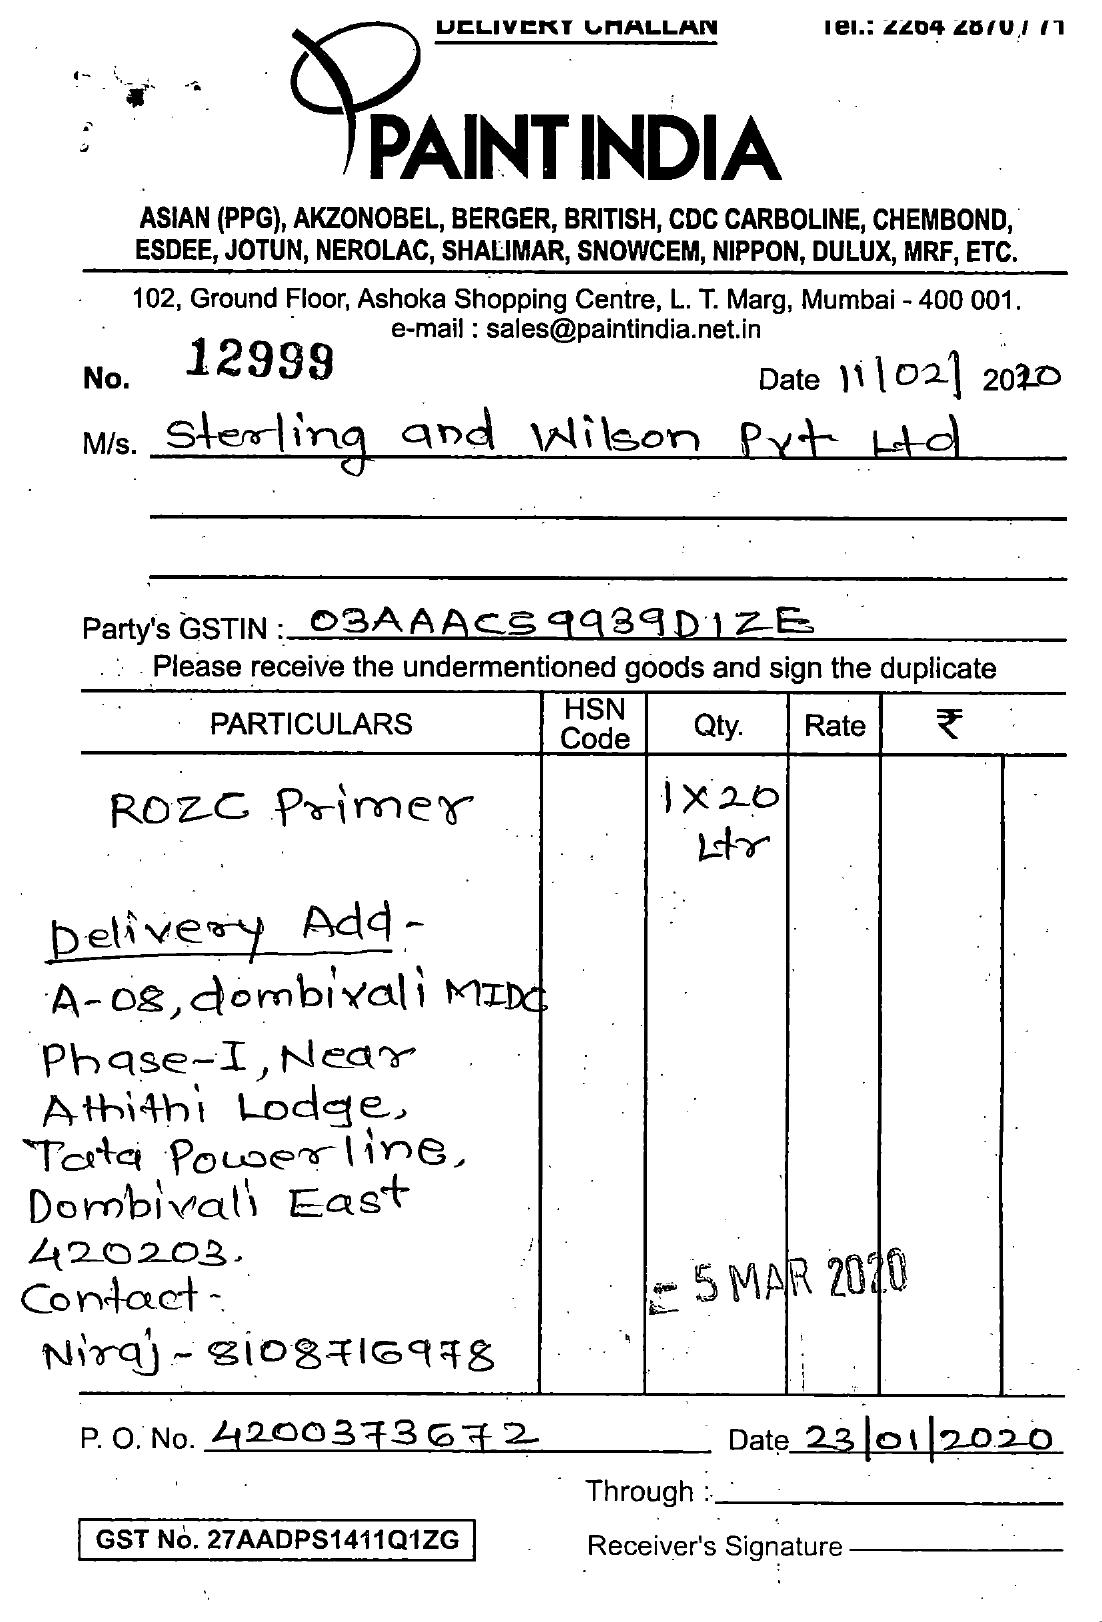 DELIVERY CHALLAN Tel.: 2264 2870 / 71
PAINT INDIA
ASIAN (PPG), AKZONOBEL, BERGER, BRITISH, CDC CARBOLINE, CHEMBOND,
ESDEE, JOTUN, NEROLAC, SHALIMAR, SNOWCEM, NIPPON, DULUX, MRF, ETC.
102, Ground Floor, Ashoka Shopping Centre, L. T. Marg, Mumbai - 400 001.
e-mail : sales@paintindia.net.in
No. 12999 Date 11/02/2020
M/s. Sterling and Wilson Pvt Ltd
Party's GSTIN : 03AAACS9939D1ZE
Please receive the undermentioned goods and sign the duplicate
PARTICULARS HSN Code Qty. Rate ₹
ROZC Primer 1X20
Ltr
Delivery Add -
A-08, dombivali MIDC
Phase-I, Near
Athithi Lodge,
Tata Powerline,
Dombivali East
420203.
Contact -
- 5 MAR 2020
Niraj - 8108716978
P. O. No. 4200373672 Date 23/01/2020
Through :
GST No. 27AADPS1411Q1ZG
Receiver's Signature